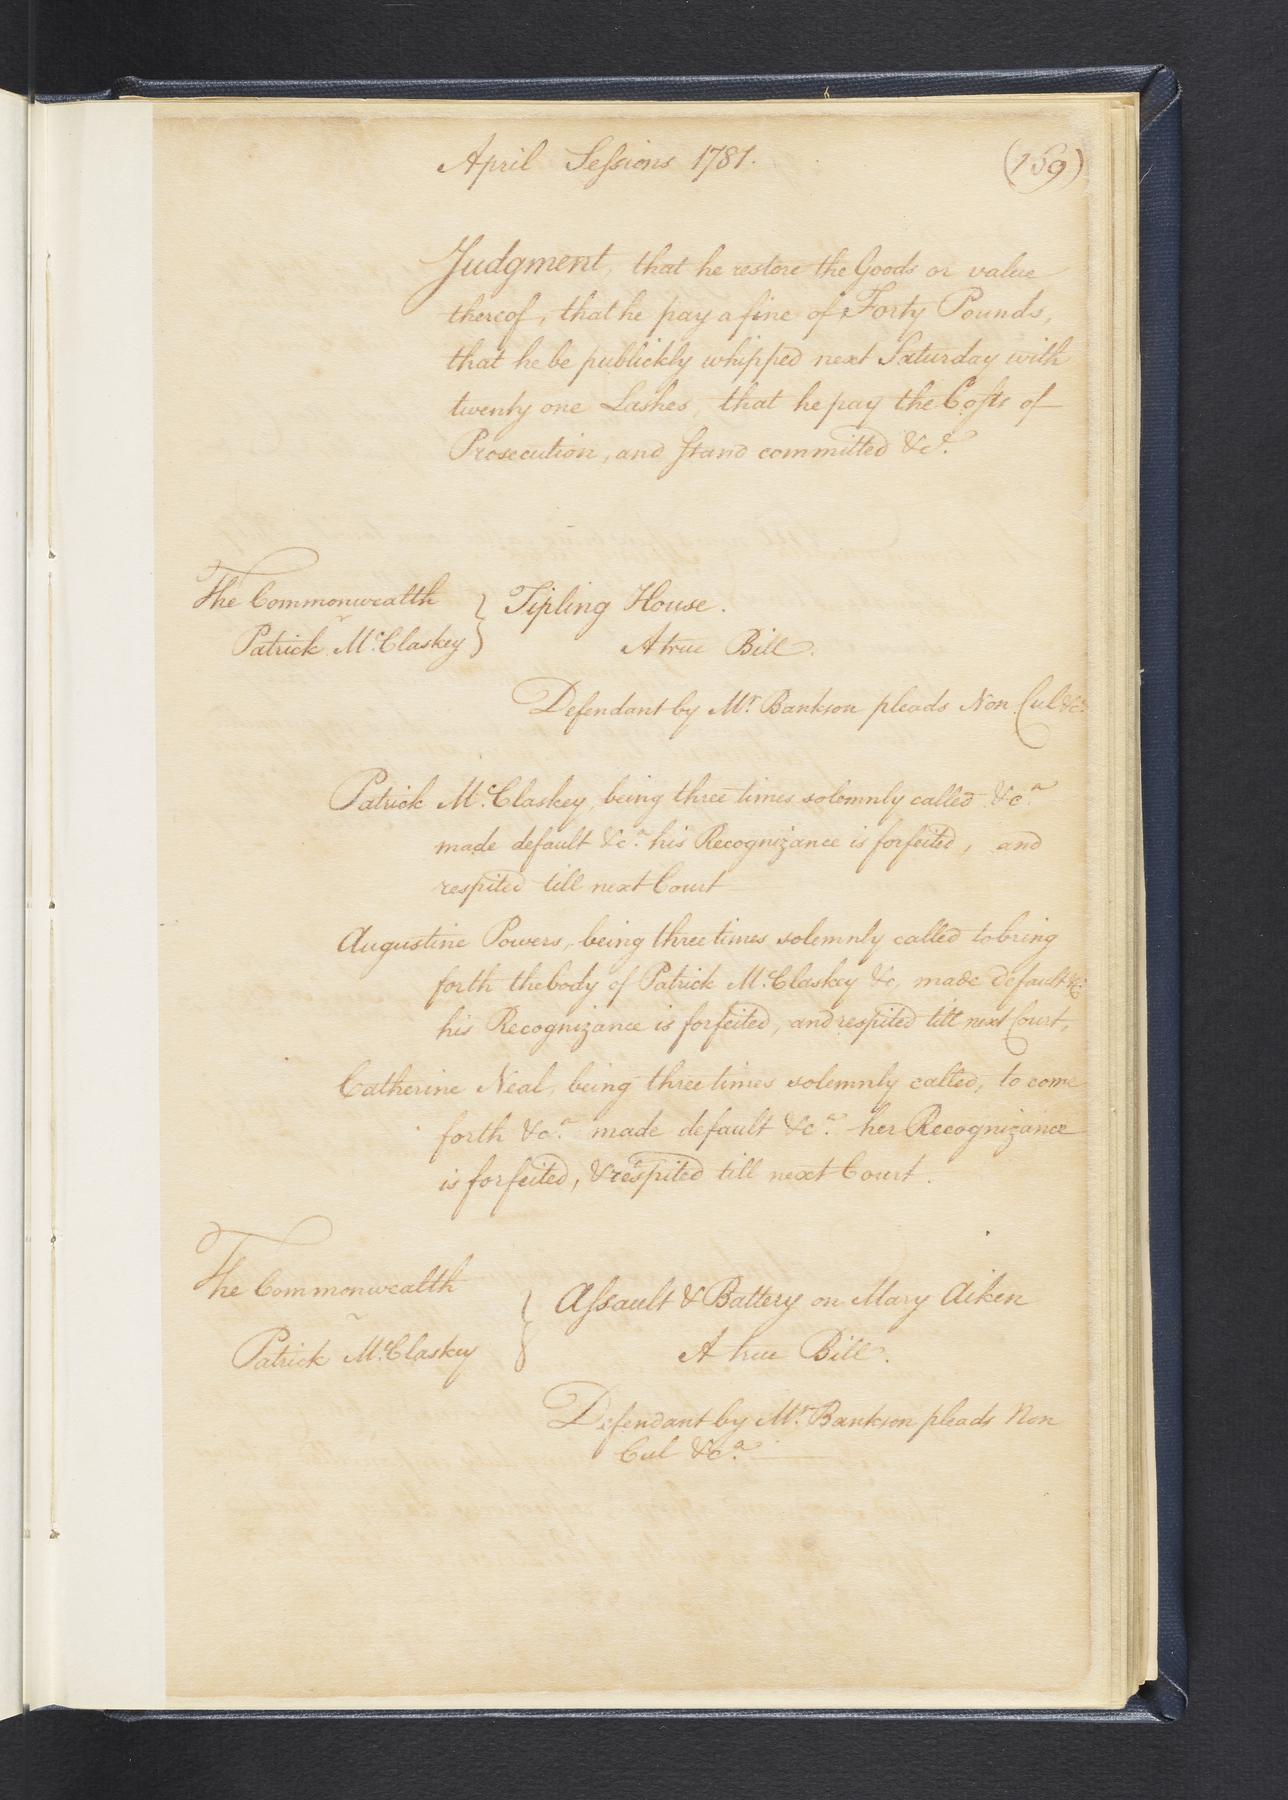 April Sessions 1781.
(159)
Judgment, that he restore the Goods or value
thereof, that he pay a fine of Forty Pounds,
that he be publickly whipped next Saturday with
twenty one Lashes, that he pay the Costs of
Prosecution, and stand committed &c.ª
The Commonwealth
v
Patrick McClaskey
} Tipling House.
A true Bill.
Defendant by Mr. Bankson pleads Non Cul &c.
Patrick McClaskey, being three times solemnly called &c.ª
made default &c.ª his Recognizance is forfeited, and
respited till next Court
Augustine Powers, being three times solemnly called to bring
forth the body of Patrick McClaskey &c, made default &c.
his Recognizance is forfeited, and respited till next Court,
Catherine Neal, being three times solemnly called, to come
forth &c.ª made default &c.ª her Recognizance
is forfeited, & respited till next Court.
The Commonwealth
v
Patrick McClaskey
} Assault & Battery on Mary Aiken
A true Bill.
Defendant by Mr. Bankson pleads Non
Cul &c.ª